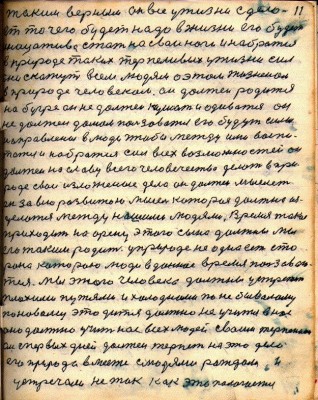 11
таким верным он вне у жизни сдела-
ет то чего будет надо в жизни его будут
стать на сваи ноги и набратся
в природе таких терпеливых у жизни сил
они скажут всем людям о этом
в природе человеком. он должен родится
на бугре он не должен кушать и одеватся он
не должен домом ползоватся его будут силы
направлены в люди чтобы между ими
и набратся сил всех возможностей он
должен на славу всего человечества делать в при-
роде свои изложенные дела он должен мыслить
он за развитою мысел которая должна
между нашими людями, Время тако
приходить на арену, этого сына должны мы
таким родить. у природе не одна сет сто
рона которою люди в данное время ползова
тся. мы этого человека должны
плохими путями и холодными по не бывалому
по новому это дитя должно не учится
оно должно учить нас всех людей своим терпением
он с первых дней должен терпеть на это дело
его природа вместе с людями рождала и
устречала не так как это полагается